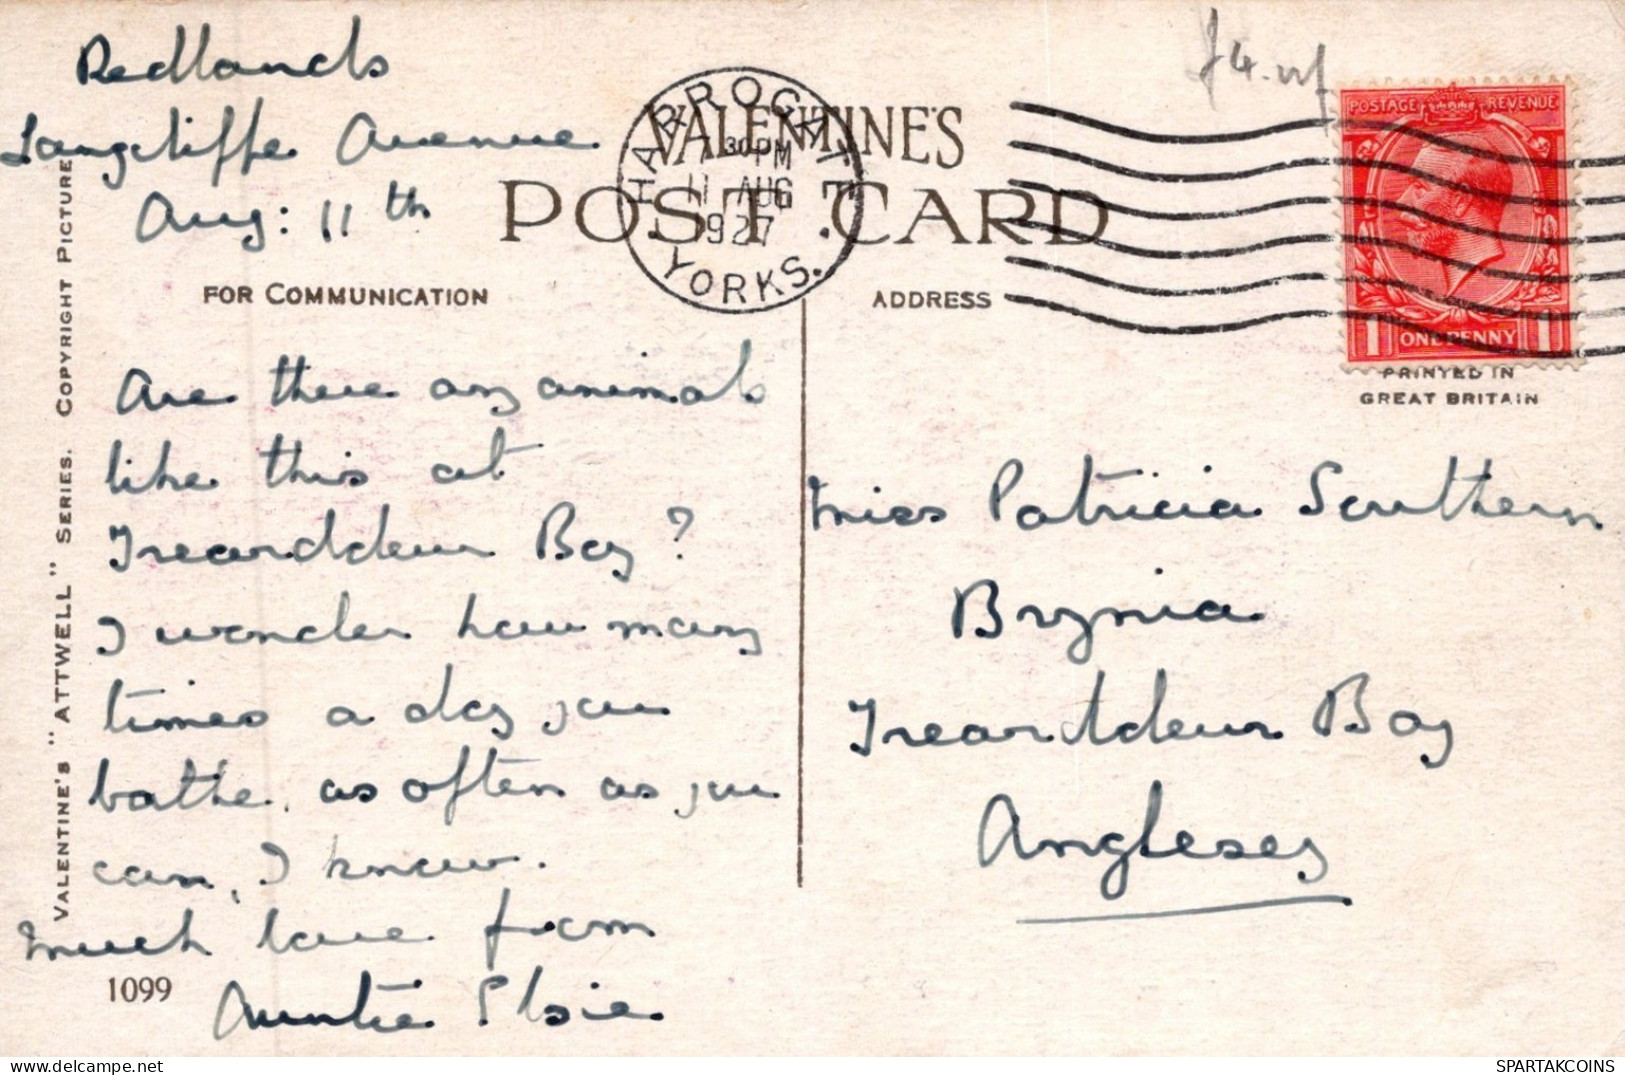 Redlands
Langcliffe Avenue
Aug: 11th
VALENTINE'S
POST CARD
HARROGATE
30PM
11 AUG
1927
YORKS.
POSTAGE REVENUE
1 ONE PENNY 1
PRINTED IN
GREAT BRITAIN
FOR COMMUNICATION
ADDRESS
VALENTINE'S "ATTWELL" SERIES. COPYRIGHT PICTURE
Are there any animals
like this at
Trearddeur Bay?
I wonder how many
times a day you
bathe, as often as you
can, I know.
Much love from
Auntie Elsie
1099
Miss Patricia Southern
Brynia
Treartdeur Bay
Anglesey
www.delcampe.net
SPARTAKCOINS